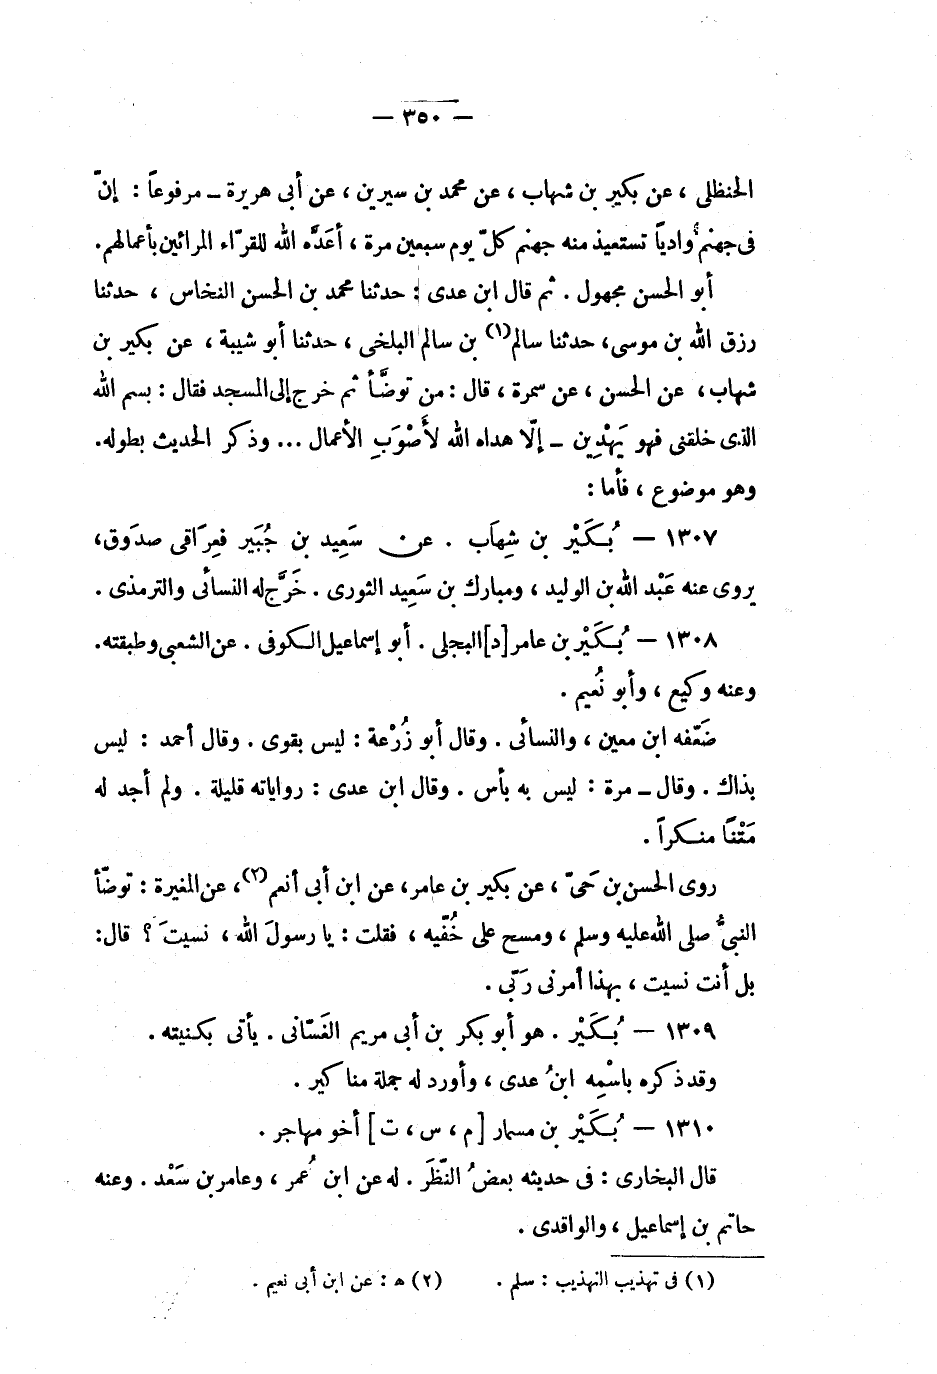 — ٣٥٠ —
الحنظلى ، عن بكير بن شهاب ، عن محمد بن سيرين ، عن أبى هريرة ــ مرفوعاً : إنّ
فى جهنم وادياً تستعيذ منه جهنم كلّ يوم سبعين مرة ، أعَدَّه الله للقرّاء المرائين بأعمالهم.
أبو الحسن مجهول . ثم قال ابن عدى : حدثنا محمد بن الحسن النخاس ، حدثنا
رزق الله بن موسى، حدثنا سالم(١) بن سالم البلخى ، حدثنا أبو شيبة ، عن بكير بن
شهاب، عن الحسن ، عن سمرة ، قال : من توضَّأ ثم خرج إلى المسجد فقال : بسم الله
الذى خلقنى فهو يَهْدِين ــ إلّا هداه الله لأَصْوَبِ الأعمال ... وذكر الحديث بطوله.
وهو موضوع ، فأما :
١٣٠٧ — بُـكَيْر بن شِهاَب . عن سَعِيد بن جُبَير فعِرَاقى صدَوق،
يروى عنه عَبْد الله بن الوليد ، ومبارك بن سَعِيد الثورى . خَرَّج له النسأئى والترمذى .
١٣٠٨ — بُـكَيْر بن عامر [د] البجلى . أبو إسماعيل الـكوفى . عن الشعبى وطبقته.
وعنه وكيع ، وأبو نُعيم .
ضَعّفه ابن معين ، والنسأئى . وقال أبو زُرْعة : ليس بقوى . وقال أحمد : ليس
بذاك . وقال ــ مرة : ليس به بأس . وقال ابن عدى : رواياته قليلة . ولم أجد له
مَتْنًا منـكراً .
روى الحسن بن حَىّ ، عن بكير بن عامر، عن ابن أبى أنعم(٢)، عن المغيرة : توضّأ
النبىُّ صلى الله عليه وسلم ، ومسح على خُفّيه ، فقلت : يا رسولَ الله ، نسيتَ ؟ قال:
بل أنت نسيت ، بهذا أمرنى رَبّى .
١٣٠٩ — بُـكَيْر . هو أبو بكر بن أبى مريم الغَسّانى . يأتى بكنيته .
وقد ذكره باسْمِه ابنُ عدى ، وأورد له جملة مناكير .
١٣١٠ — بُـكَيْر بن مسمار [م ، س ، ت] أخو مهاجر .
قال البخارى : فى حديثه بعضُ النّظَر . له عن ابن عُمر ، وعامر بن سَعْد . وعنه
حاتم بن إسماعيل ، والواقدى .
(١) فى تهذيب التهذيب : سلم . (٢) ه : عن ابن أبى نعيم .